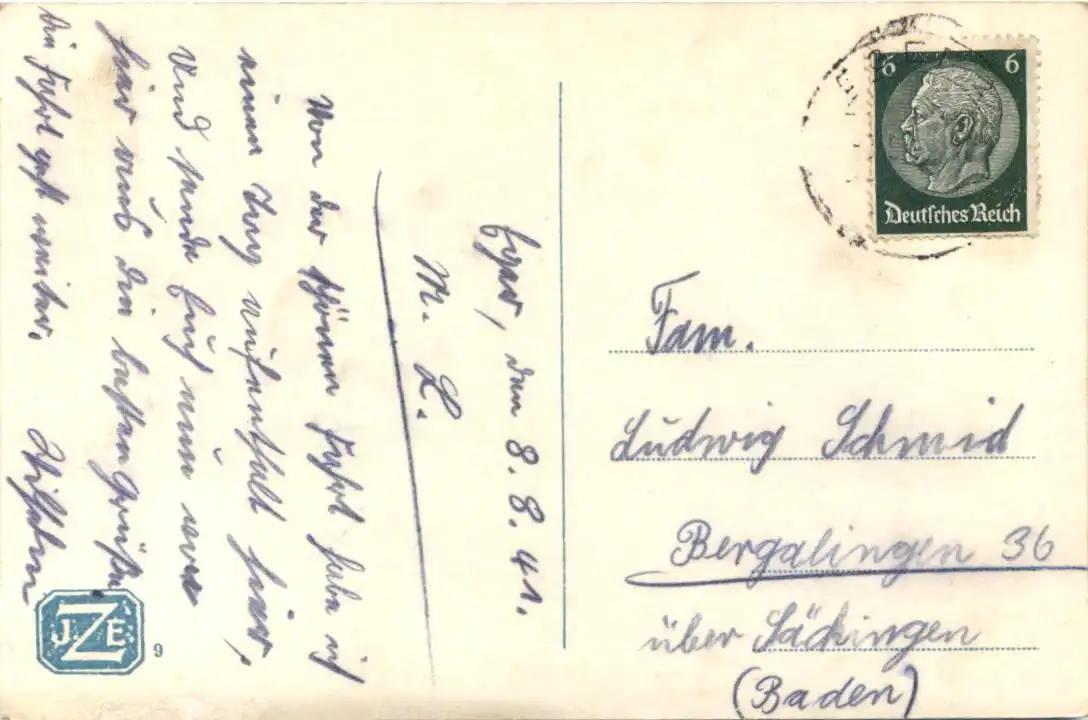 Eger, den 8. 8. 41.
M. L.
Von der schönen Fahrt habe ich
einen Tag aufenthalt hier,
und sende Euch nun von
hier aus die besten Grüße.
Die Fahrt geht weiter.
Wilhelm
6 6
Deutsches Reich
EGER
Fam.
Ludwig Schmid
Bergalingen 36
über Säckingen
(Baden)
JZE
9